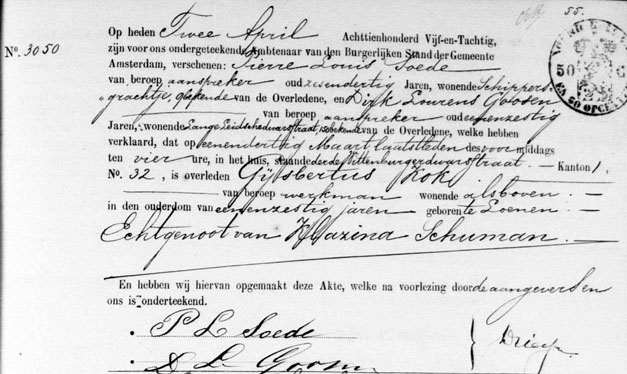 55.
Op heden Twee April Achttienhonderd Vijf-en-Tachtig,
No. 3050 zijn voor ons ondergeteekende Ambtenaar van den Burgerlijken Stand der Gemeente
Amsterdam, verschenen: Pierre Louis Soede
van beroep aanspreker oud zesendertig Jaren, wonende Schippers
grachtje, bekende van de Overledene, en Dirk Lourens Goosen
van beroep aanspreker oud eenenzestig
Jaren, wonende Lange Leidschedwarsstraat, bekende van de Overledene, welke hebben
verklaard, dat op eenendertig Maart laatstleden des voor middags
ten vier ure, in het huis, staande derde Wittenburgerdwarsstraat. — Kanton 1,
No. 32, is overleden Gijsbertus Kok
van beroep werkman wonende alsboven. —
in den ouderdom van eenenzestig jaren geboren te Loenen —
Echtgenoot van Klazina Schuman. —
En hebben wij hiervan opgemaakt deze Akte, welke na voorlezing door de aangevers en
ons is onderteekend.
P L Soede
D L Goosen
50 C